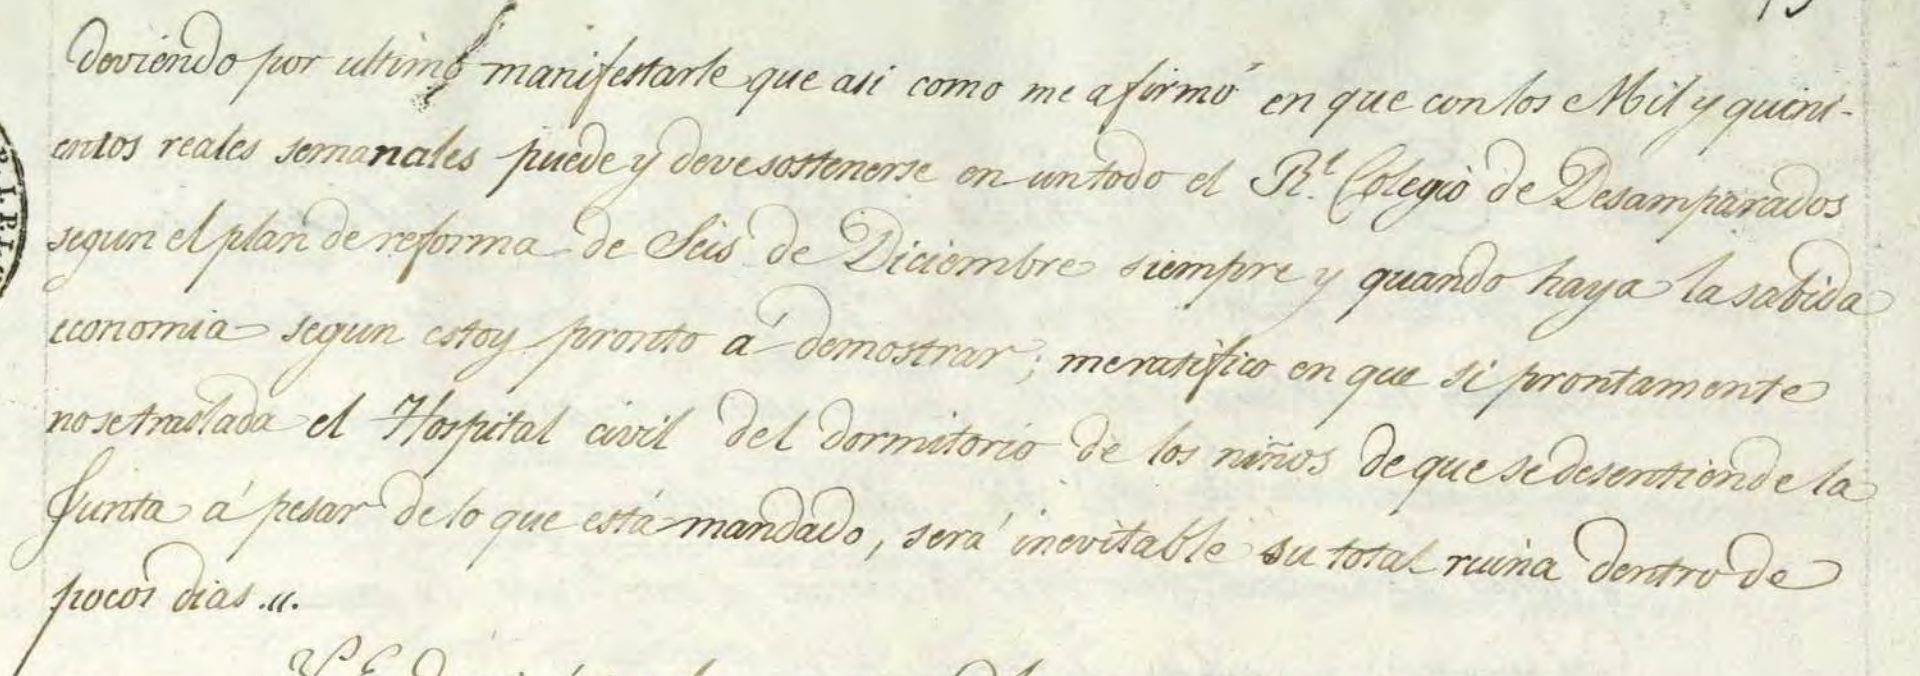 deviendo por ultimo manifestarle que asi como me afirmó en que con los Mil y quini-
entos reales semanales puede y deve sostenerse en un todo el Rl. Colegio de Desamparados
segun el plan de reforma de Seis de Diciembre siempre y quando haya la sabida
economia segun estoy pronto á demostrar; me ratifico en que si prontamente
no se traslada el Hospital civil del dormitorio de los niños de que se desentiende la
Junta á pesar de lo que está mandado, será inevitable su total ruina dentro de
pocos dias...